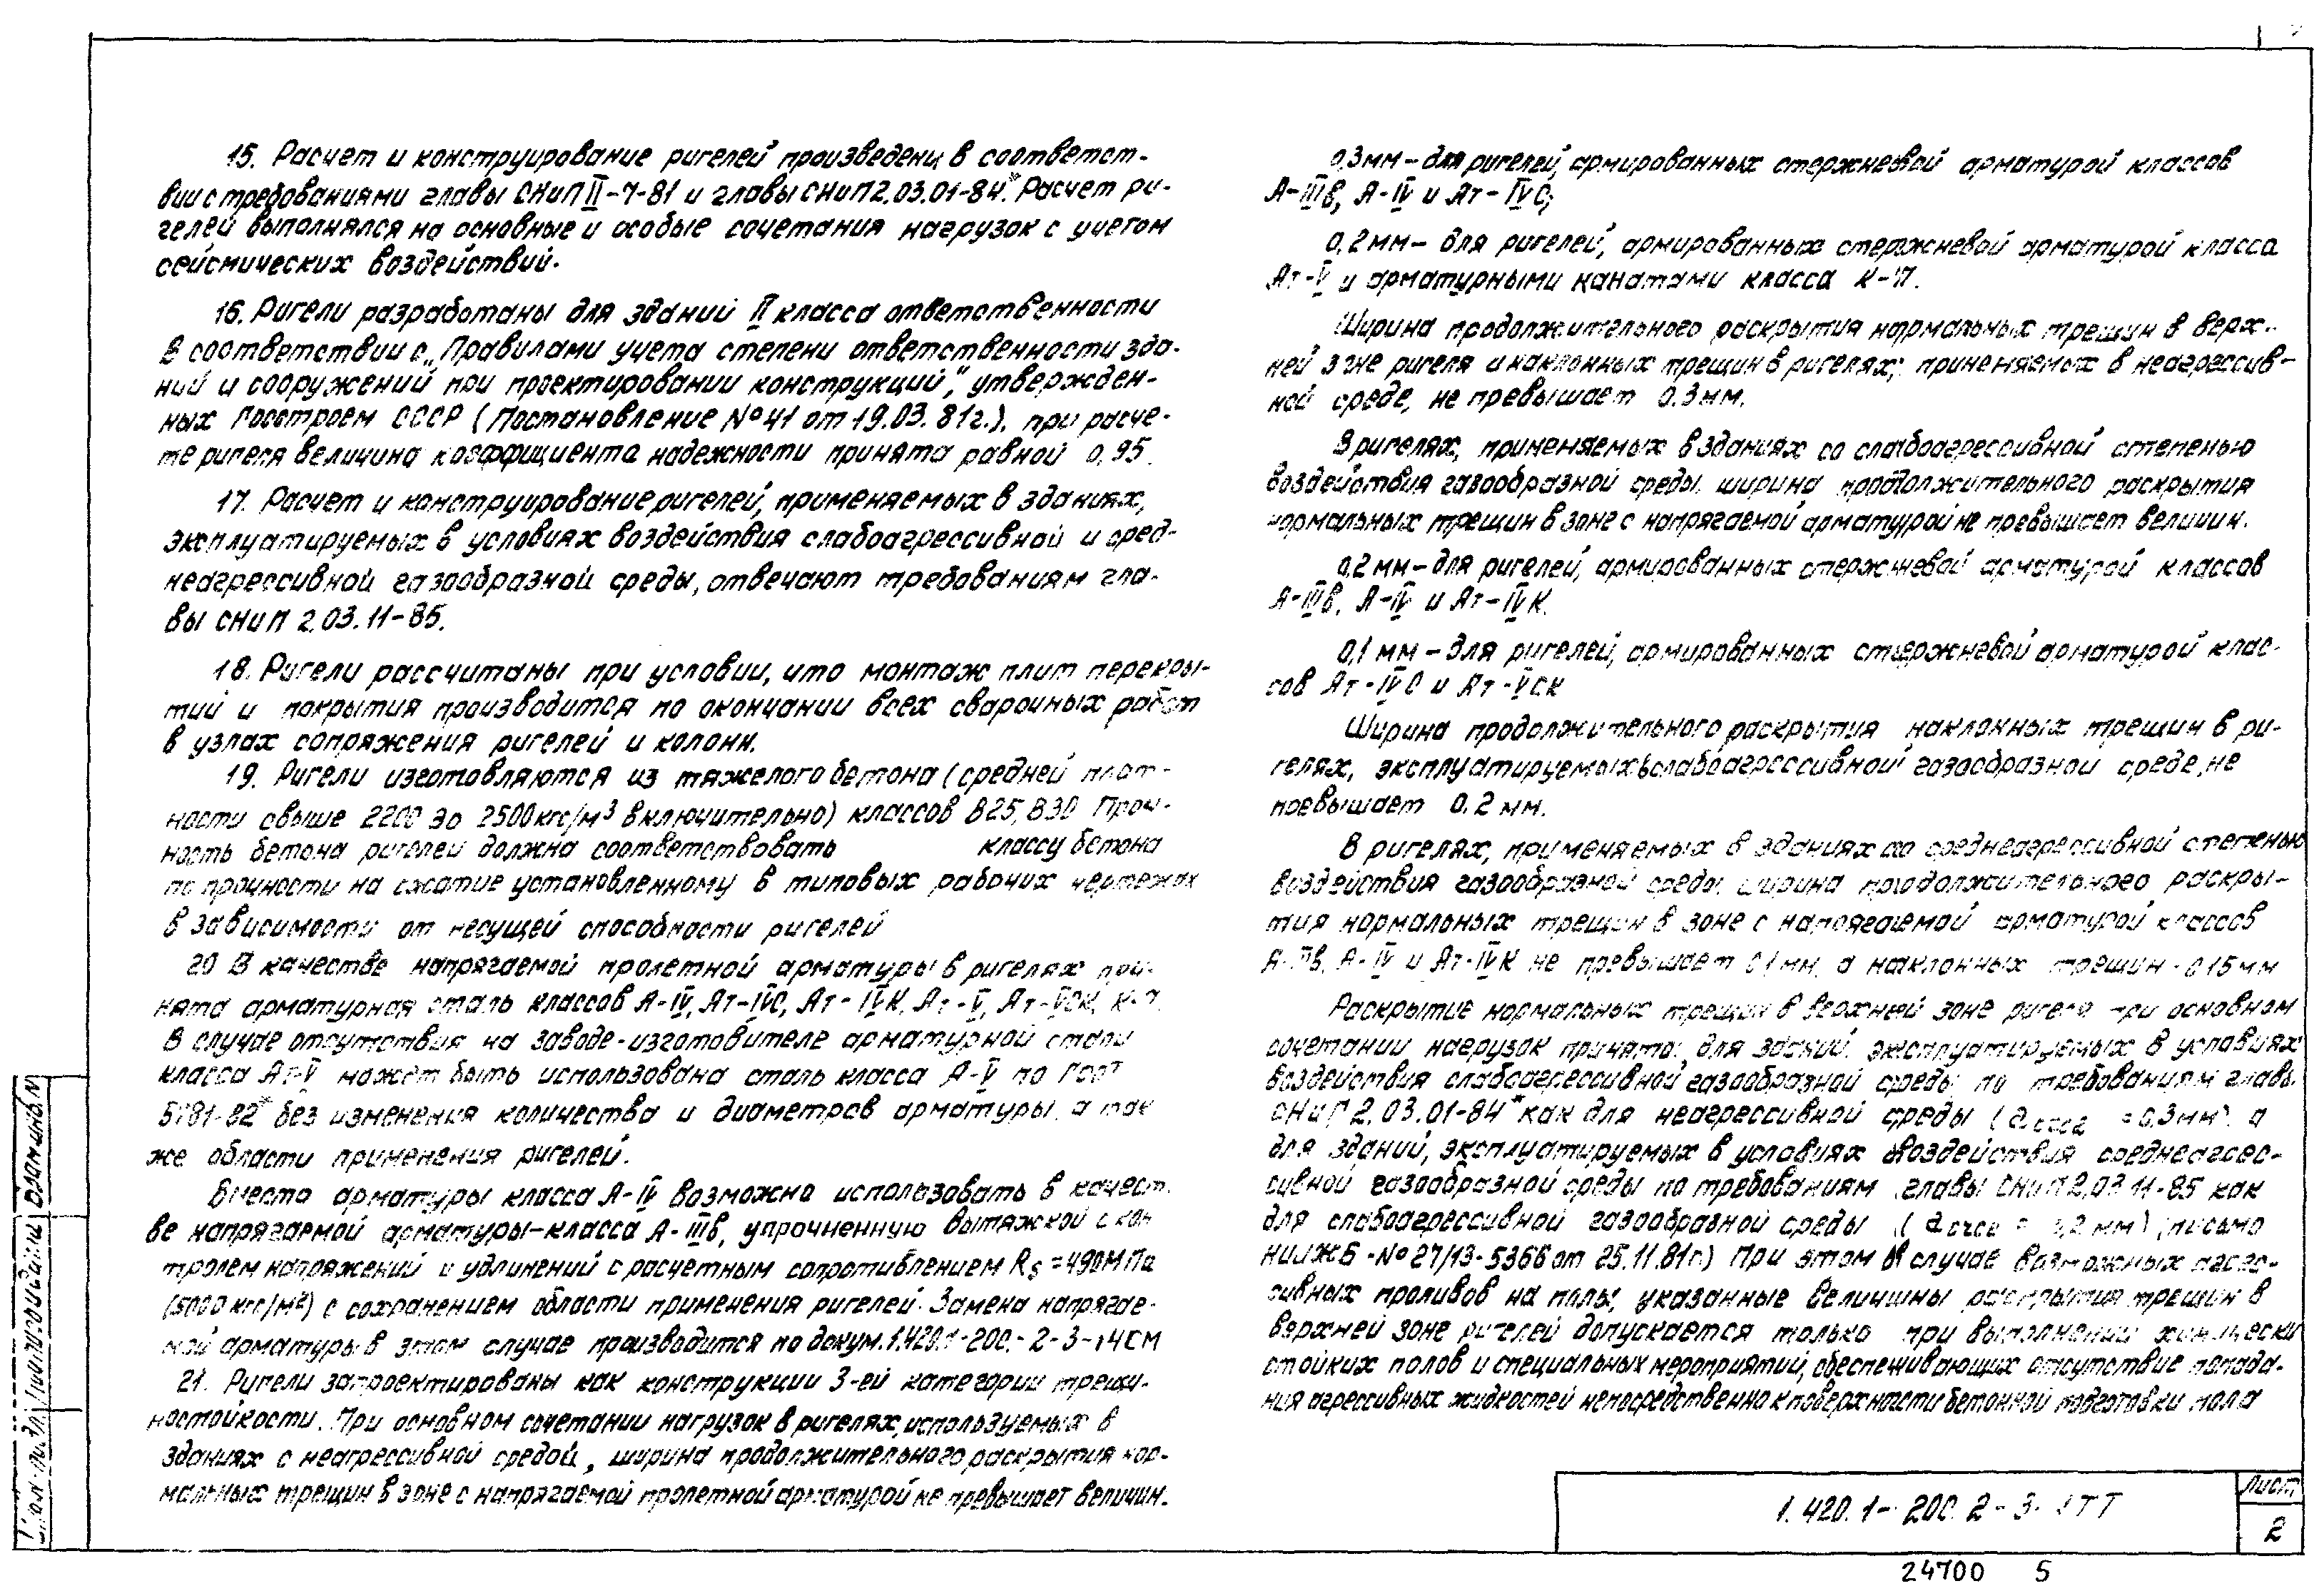 15. Расчет и конструирование ригелей произведены в соответст-
вии с требованиями главы СНиП II-7-81 и главы СНиП 2.03.01-84*. Расчет ри-
гелей выполнялся на основные и особые сочетания нагрузок с учетом
сейсмических воздействий.
16. Ригели разработаны для зданий II класса ответственности
в соответствии с „Правилами учета степени ответственности зда-
ний и сооружений при проектировании конструкций", утвержден-
ных Госстроем СССР (Постановление № 41 от 19.03.81г.). при расче-
те ригеля величина коэффициента надежности принята равной 0,95.
17. Расчет и конструирование ригелей, применяемых в зданиях,
эксплуатируемых в условиях воздействия слабоагрессивной и сред-
неагрессивной газообразной среды, отвечают требованиям гла-
вы СНиП 2.03.11-85.
18. Ригели рассчитаны при условии, что монтаж плит перекры-
тий и покрытия производится по окончании всех сварочных работ
в узлах сопряжения ригелей и колонн.
19. Ригели изготовляются из тяжелого бетона (средней плот-
ности свыше 2200 до 2500 кгс/м³ включительно) классов В25, В30 Проч-
ность бетона ригелей должна соответствовать классу бетона
по прочности на сжатие установленному в типовых рабочих чертежах
в зависимости от несущей способности ригелей
20 В качестве напрягаемой пролетной арматуры в ригелях при-
нята арматурная сталь классов А-IV, Ат-IVС, Ат-IVК, Ат-V, Ат-VСК, К-7.
В случае отсутствия на заводе-изготовителе арматурной стали
класса Ат-V может быть использована сталь класса А-V по ГОСТ
5781-82* без изменения количества и диаметров арматуры, а так
же области применения ригелей.
Вместо арматуры класса А-IV возможно использовать в качест-
ве напрягаемой арматуры-класса А-IIIв, упрочненную вытяжкой с кон
тролем напряжений и удлинений с расчетным сопротивлением Rs=490МПа
(5000 кгс/м²) с сохранением области применения ригелей. Замена напрягае-
мой арматуры в этом случае производится по докум. 1.420.1-20С.-2-3-14СМ
21. Ригели запроектированы как конструкции 3-ей категории трещи-
ностойкости. При основном сочетании нагрузок в ригелях, используемых в
зданиях с неагрессивной средой, ширина продолжительного раскрытия нор-
мальных трещин в зоне с напрягаемой пролетной арматурой не превышает величин.
0,3мм-для ригелей, армированных стержневой арматурой классов
А-IIIв, А-IV и Ат-IVС;
0,2мм- для ригелей, армированных стержневой арматурой класса
Ат-V и арматурными канатами класса К-7.
Ширина продолжительного раскрытия нормальных трещин в верх-
ней зоне ригеля и наклонных трещин в ригелях, применяемых в неагрессив-
ной среде, не превышает 0.3мм.
В ригелях, применяемых в зданиях со слабоагрессивной степенью
воздействия газообразной среды, ширина продолжительного раскрытия
нормальных трещин в зоне с напрягаемой арматурой не превышает величин.
0,2 мм-для ригелей, армированных стержневой арматурой классов
А-IIIв, А-IV и Ат-IVК.
0,1 мм-для ригелей, армированных стержневой арматурой клас-
сов Ат-IVС и Ат-VСК
Ширина продолжительного раскрытия наклонных трещин в ри-
гелях, эксплуатируемых в слабоагрессивной газообразной среде, не
превышает 0.2 мм.
В ригелях, применяемых в зданиях со среднеагрессивной степенью
воздействия газообразной среды ширина продолжительного раскры-
тия нормальных трещин в зоне с напрягаемой арматурой классов
А-IIIв, А-IV и Ат-IVК не превышает 0.1мм, а наклонных трещин-0.15мм
Раскрытие нормальных трещин в верхней зоне ригеля при основном
сочетании нагрузок принято: для зданий, эксплуатируемых в условиях
воздействия слабоагрессивной газообразной среды по требованиям главы
СНиП 2.03.01-84* как для неагрессивной среды (acrc2 =0.3мм), а
для зданий, эксплуатируемых в условиях воздействия среднеагрес-
сивной газообразной среды по требованиям главы СНиП 2,03.11-85 как
для слабоагрессивной газообразной среды (acrc2 = 0,2 мм) письмо
НИИЖБ-№ 27/13-5366 от 25.11.81г.) При этом в случае возможных агрес-
сивных проливов на полы, указанные величины раскрытия трещин в
верхней зоне ригелей допускается только при выполнении химически
стойких полов и специальных мероприятий, обеспечивающих отсутствие попада-
ния агрессивных жидкостей непосредственно к поверхности бетонной подготовки пола
1.420.1-20С.2-3- ТТ
Лист
2
24700 5